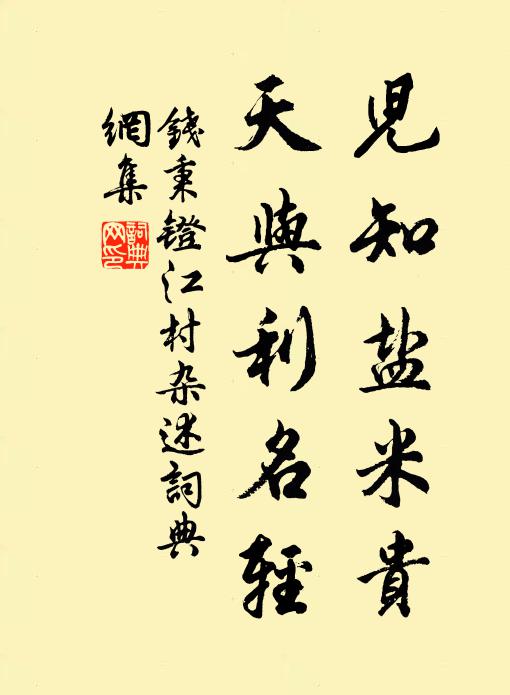 児知盐米貴
天與利名輕
錢秉镫江村杂述詞典
網集
詞典
网印